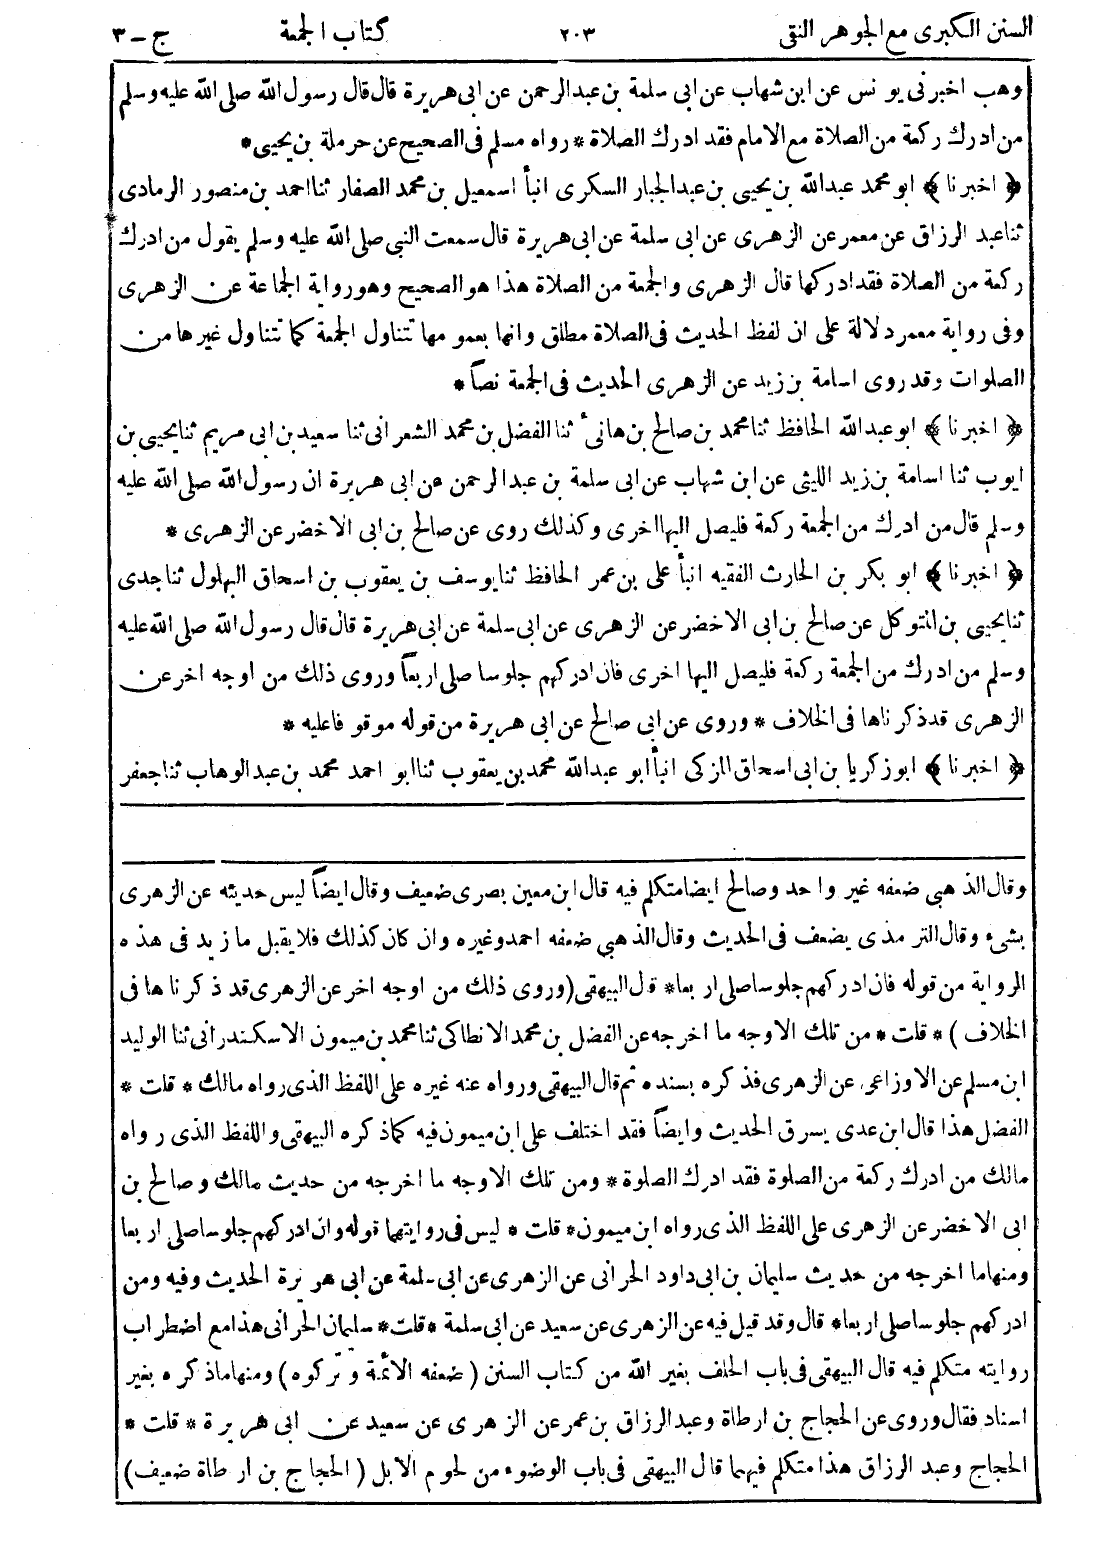 السنن الكبرى مع الجوهر النقى ٢٠٣ كتاب الجمعة ج – ٣
وهب اخبرنى يونس عن ابن شهاب عن ابى سلمة بن عبدالرحمن عن ابى هريرة قال قال رسول الله صلى الله عليه وسلم
من ادرك ركعة من الصلاة مع الامام فقد ادرك الصلاة * رواه مسلم فى الصحيح عن حرملة بن يحيى *
﴿ اخبرنا ﴾ ابو محمد عبدالله بن يحيى بن عبدالجبار السكرى انبأ اسمعيل بن محمد الصفار ثنا احمد بن منصور الرمادى
ثنا عبد الرزاق عن معمر عن الزهرى عن ابى سلمة عن ابى هريرة قال سمعت النبى صلى الله عليه وسلم يقول من ادرك
ركعة من الصلاة فقد ادركها قال الزهرى والجمعة من الصلاة هذا هو الصحيح وهو رواية الجماعة عن الزهرى
وفى رواية معمر دلالة على ان لفظ الحديث فى الصلاة مطلق وانها بعمومها تتناول الجمعة كما تتناول غيرها من
الصلوات وقد روى اسامة بن زيد عن الزهرى الحديث فى الجمعة نصاً *
﴿ اخبرنا ﴾ ابو عبدالله الحافظ ثنا محمد بن صالح بن هانىٔ ثنا الفضل بن محمد الشعرانى ثنا سعيد بن ابى مريم ثنا يحيى بن
ايوب ثنا اسامة بن زيد الليثى عن ابن شهاب عن ابى سلمة بن عبدالرحمن عن ابى هريرة ان رسول الله صلى الله عليه
وسلم قال من ادرك من الجمعة ركعة فليصل اليها اخرى وكذلك روى عن صالح بن ابى الاخضر عن الزهرى *
﴿ اخبرنا ﴾ ابو بكر بن الحارث الفقيه انبأ على بن عمر الحافظ ثنا يوسف بن يعقوب بن اسحاق البهلول ثنا جدى
ثنا يحيى بن المتوكل عن صالح بن ابى الاخضر عن الزهرى عن ابى سلمة عن ابى هريرة قال قال رسول الله صلى الله عليه
وسلم من ادرك من الجمعة ركعة فليصل اليها اخرى فان ادركهم جلوسا صلى اربعاً وروى ذلك من اوجه اخر عن
الزهرى قد ذكرناها فى الخلاف * وروى عن ابى صالح عن ابى هريرة من قوله موقوفا عليه *
﴿ اخبرنا ﴾ ابو زكريا بن ابى اسحاق المزكى انبأ أبو عبدالله محمد بن يعقوب ثنا ابو احمد محمد بن عبدالوهاب ثنا جعفر
وقال الذهبى ضعفه غير واحد وصالح ايضا متكلم فيه قال ابن معين بصرى ضعيف وقال ايضاً ليس حديثه عن الزهرى
بشىء وقال الترمذى يضعف فى الحديث وقال الذهبى ضعفه احمد وغيره وان كان كذلك فلا يقبل ما زيد فى هذه
الرواية من قوله فان ادركهم جلوسا صلى اربعا * قال البيهقى (وروى ذلك من اوجه اخر عن الزهرى قد ذكرناها فى
الخلاف ) * قلت * من تلك الاوجه ما اخرجه عن الفضل بن محمد الانطاكى ثنا محمد بن ميمون الاسكندرانى ثنا الوليد
ابن مسلم عن الاوزاعى عن الزهرى فذكره بسنده ثم قال البيهقى ورواه عنه غيره على اللفظ الذى رواه مالك * قلت *
الفضل هذا قال ابن عدى يسرق الحديث وايضاً فقد اختلف على ابن ميمون فيه كما ذكره البيهقى واللفظ الذى رواه
مالك من ادرك ركعة من الصلوة فقد ادرك الصلوة * ومن تلك الاوجه ما اخرجه من حديث مالك وصالح بن
ابى الاخضر عن الزهرى على اللفظ الذى رواه ابن ميمون * قلت * ليس فى روايتهما قوله وان ادركهم جلوسا صلى اربعا
ومنها ما اخرجه من حديث سليمان بن ابى داود الحرانى عن الزهرى عن ابى سلمة عن ابى هريرة الحديث وفيه ومن
ادركهم جلوسا صلى اربعا * قال وقد قيل فيه عن الزهرى عن سعيد عن ابى سلمة * قلت * سليمان الحرانى هذا مع اضطراب
روايته متكلم فيه قال البيهقى فى باب الحلف بغير الله من كتاب السنن ( ضعفه الأئمة وتركوه ) ومنها ما ذكره بغير
اسناد فقال وروى عن الحجاج بن ارطاة وعبد الرزاق بن عمر عن الزهرى عن سعيد عن ابى هريرة * قلت *
الحجاج وعبد الرزاق هذا متكلم فيهما قال البيهقى فى باب الوضوء من لحوم الابل ( الحجاج بن ارطاة ضعيف)